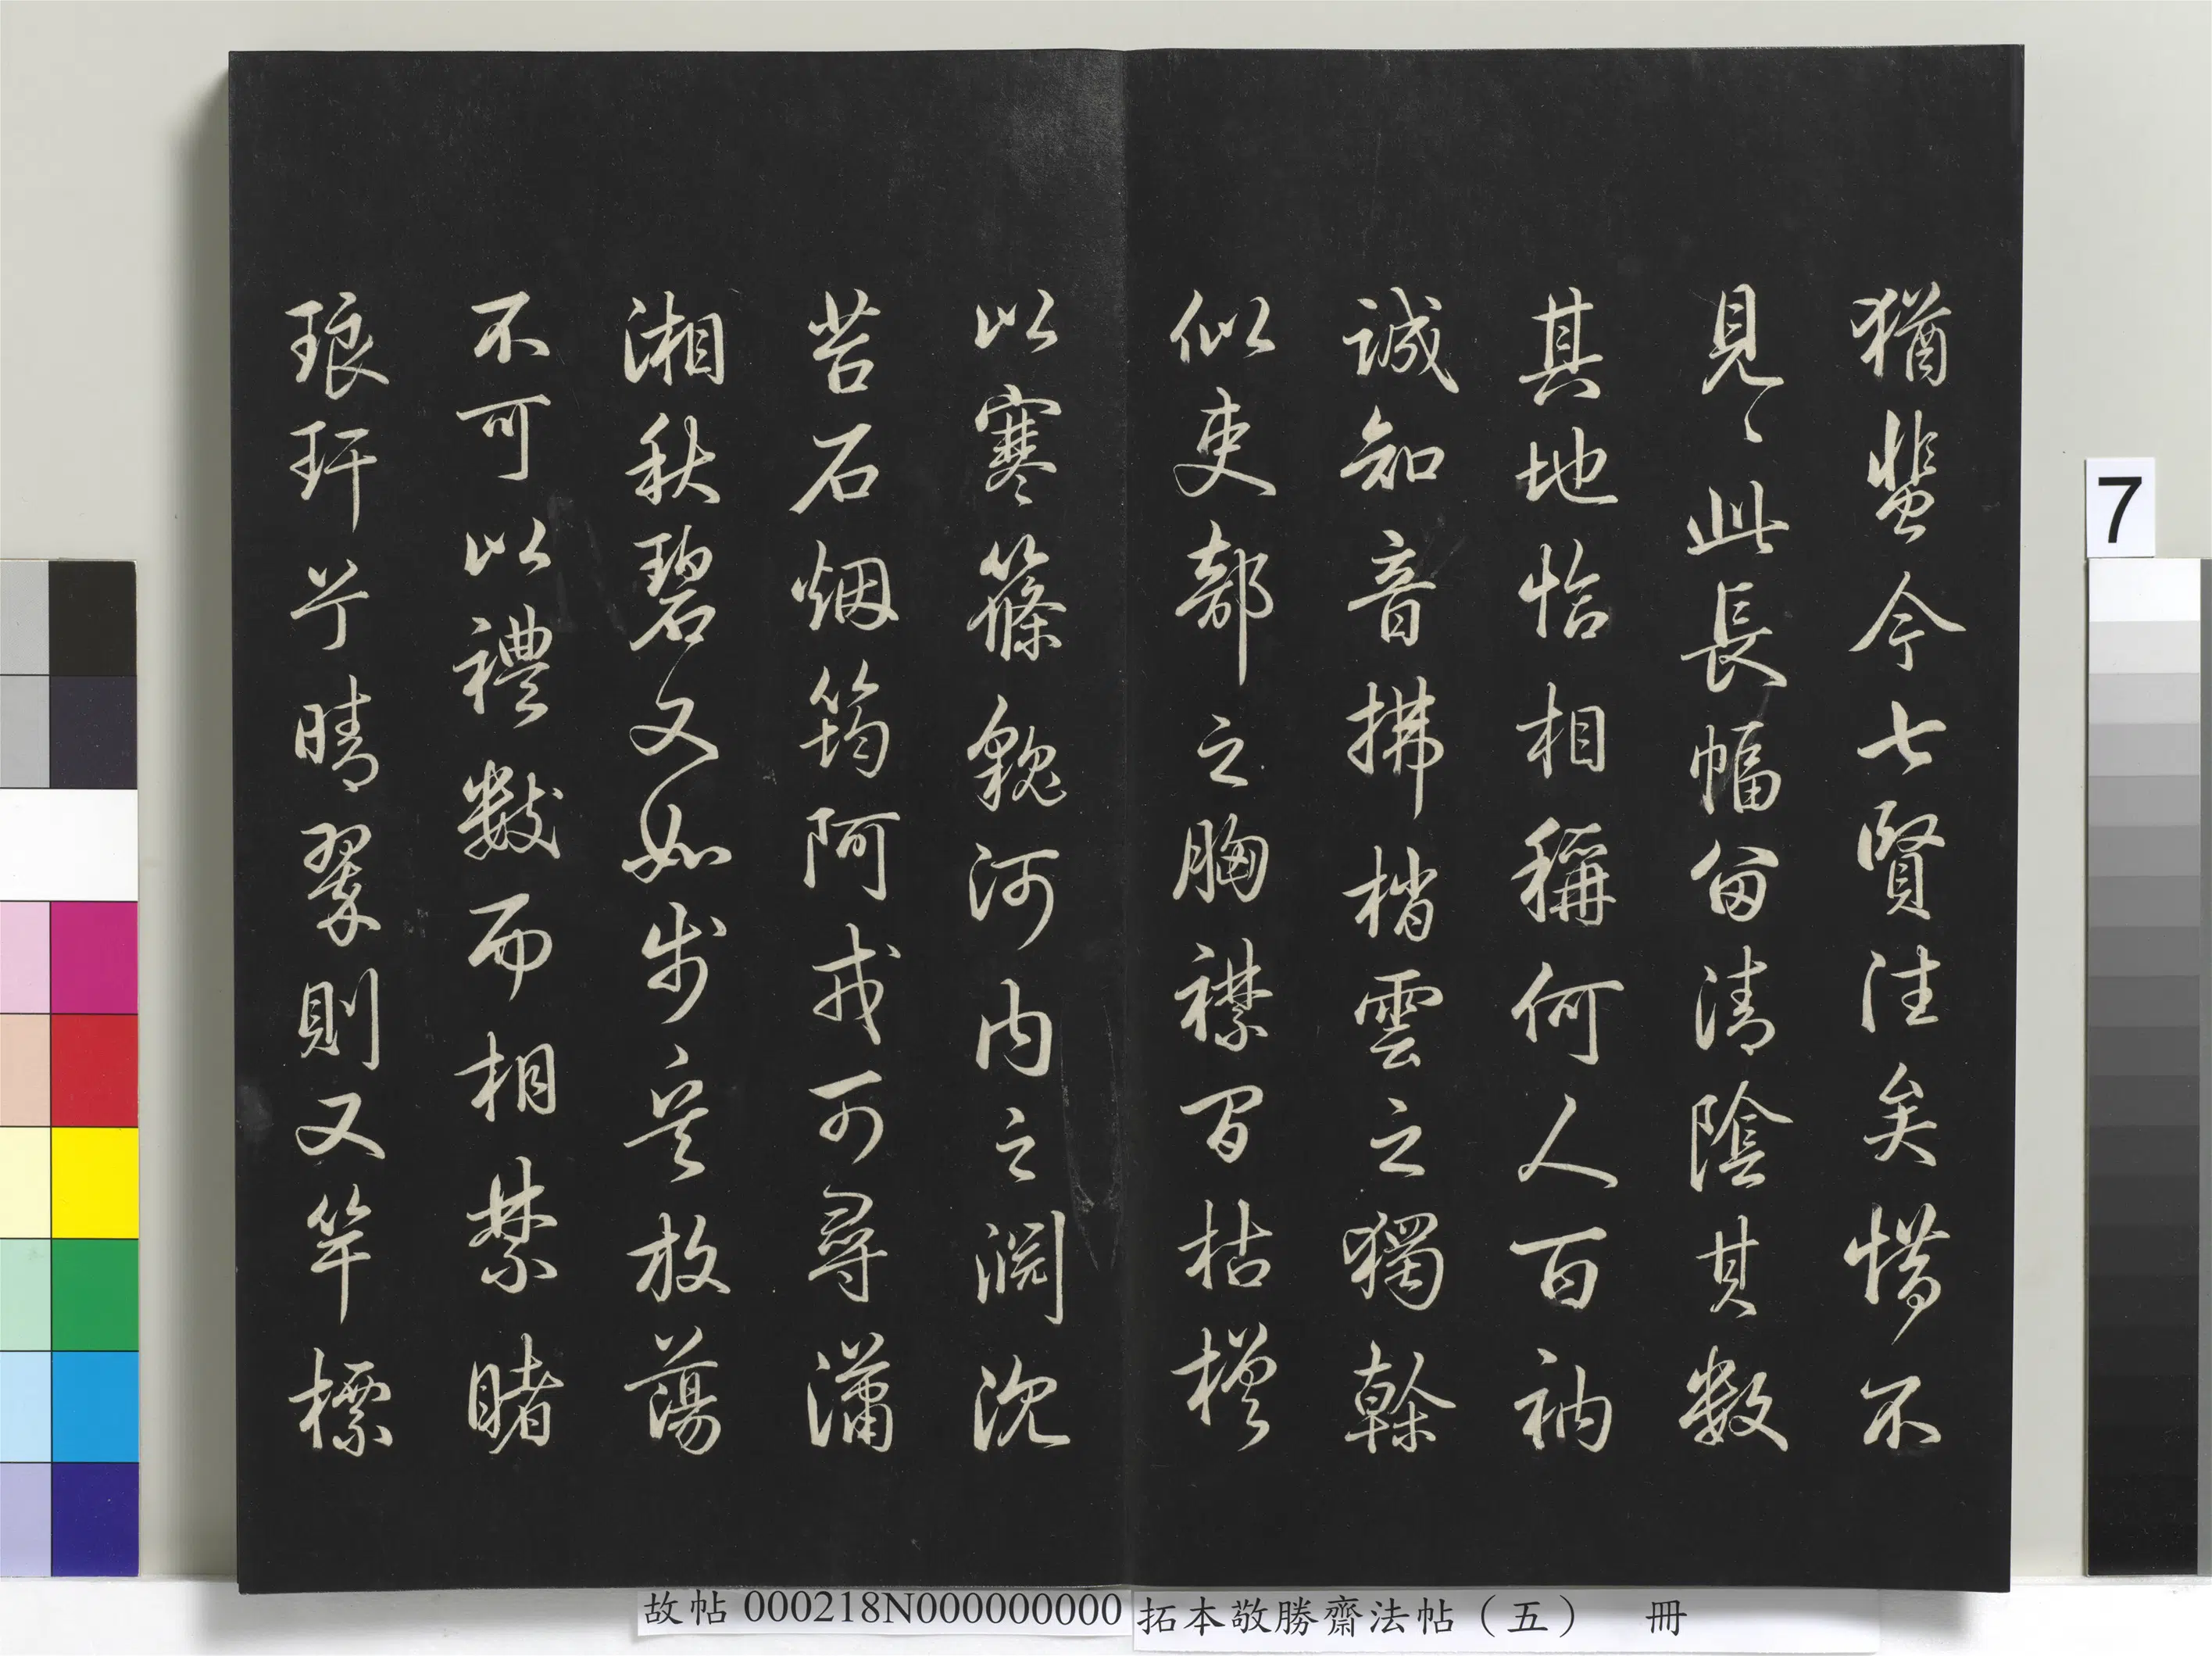 猶蜚今七賢往矣惜不
見〻此長幅留清陰其數
其地恰相稱何人百衲
誠知音拂梢雲之獨幹
似吏部之胸襟百枯槎
以寒篠貌河内之淵沈
苔石烟筠阿戎可尋瀟
湘秋碧又如步兵放蕩
不可以禮數而相禁睹
琅玕兮晴翠則又竿標
故帖000218N000000000 拓本敬勝齋法帖（五） 冊
7